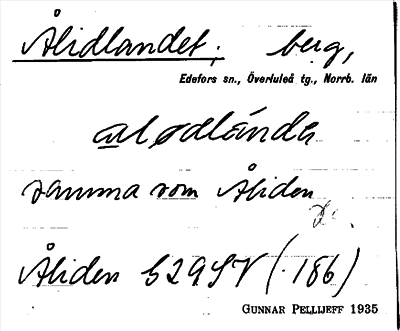 Ålidlandet; berg,
Edefors sn., Överluleå tg., Norrb. län
samma som Åliden
Åliden 629SV (·186)
GUNNAR PELLIJEFF 1935